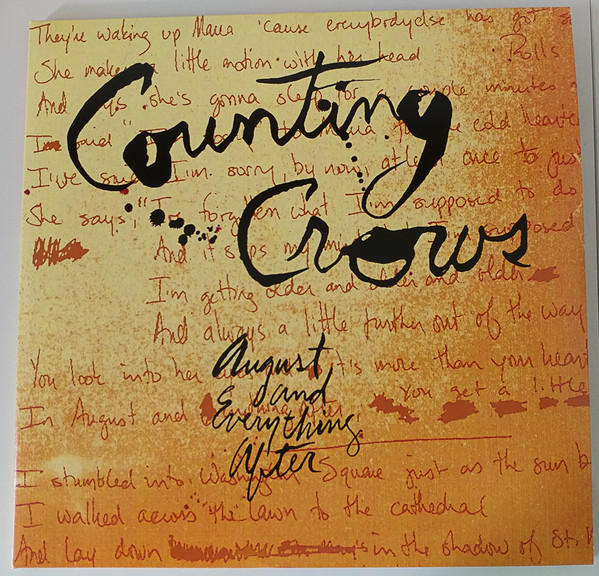 Counting
Crows
August
and
Everything
After
They're waking up Maria 'cause everybody else has got
She makes a little motion with her head Rolls
And she's gonna sleep for a couple minutes
I said "I'm to Maria for the cold hearted
I've said I'm sorry, by now, at least once to just
She says, "I've forgotten what I'm supposed to do
And it slips my
I'm getting older and older and older
And always a little further out of the way
You look into her it's more than your heart
In August and everything after You get a little
I stumbled into Washington Square just as the sun
I walked across the lawn to the cathedral
And lay down in the shadow of St.